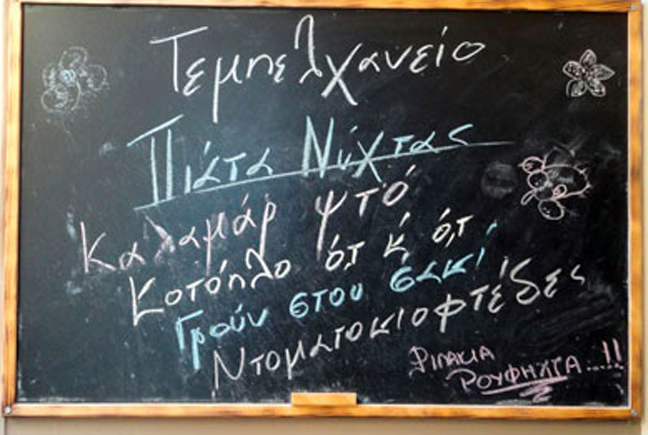 Τεμπελχανείο
Πιάτα Νύχτας
Καλαμάρ ψτό
Κοτόπλο ό,τ κ ό,τ
Γρούν στου σακί
Ντοματοκιοφτέδες
ΦΙΛΑΚΙΑ
ΡΟΥΦΗΧΤΑ....!!